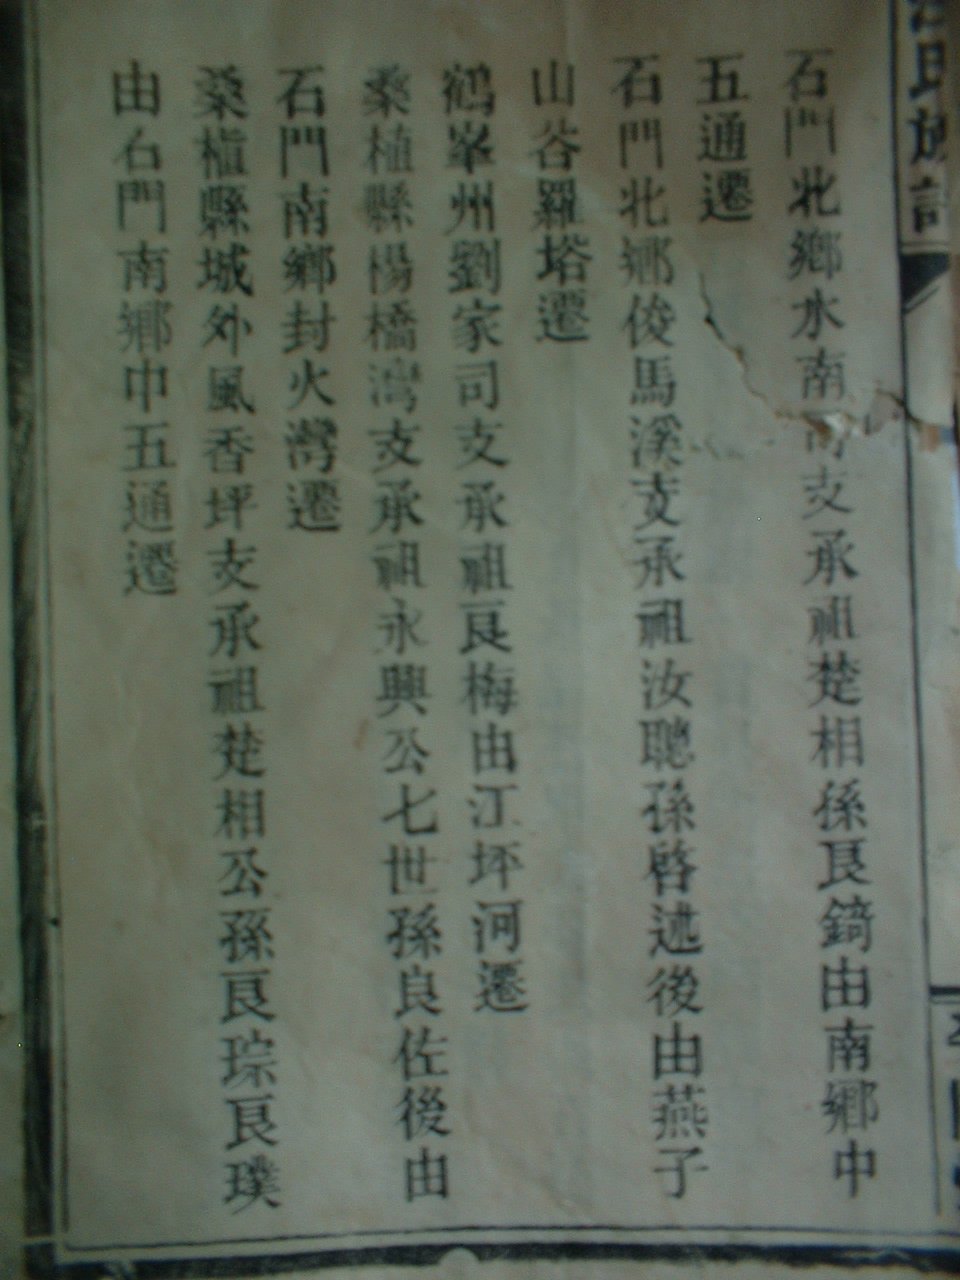 石門北鄉水南灣支承祖楚相孫良錡由南鄉中
五通遷
石門北鄉俊馬溪支承祖汝聰孫啓述後由燕子
山谷羅塔遷
鶴峯州劉家司支承祖良梅由江坪河遷
桑植縣楊橋灣支承祖永興公七世孫良佐後由
石門南鄉封火灣遷
桑植縣城外風香坪支承祖楚相公孫良琮良璞
由石門南鄉中五通遷